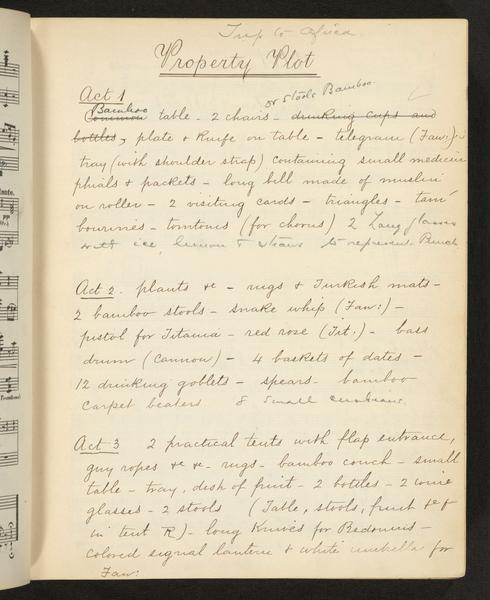 Trip to Africa
Property Plot
or stools Bamboo
Act 1
Bamboo
Common table - 2 chairs - drinking cups and
bottles, plate & knife on table - telegram (Faw:)
tray (with shoulder strap) containing small medicine
phials & packets - long bill made of muslin
on roller - 2 visiting cards - triangles - tam
bourines - tomtoms (for chorus) 2 Long glasses
with ice, lemon & straws to represent Punch
Act 2 - plants &c - rugs & Turkish mats -
2 bamboo stools - snake whip (Faw:) -
pistol for Titania - red rose (Tit:) - bass
drum (cannon) - 4 baskets of dates -
12 drinking goblets - spears - bamboo
carpet beaters 8 small cushions.
Act 3 2 practical tents with flap entrance,
guy ropes &c &c - rugs - bamboo couch - small
table - tray, dish of fruit - 2 bottles - 2 wine
glasses - 2 stools (Table, stools, fruit &c &
in tent R) - long knives for Bedouins -
colored signal lantern & white umbrella for
Faw: